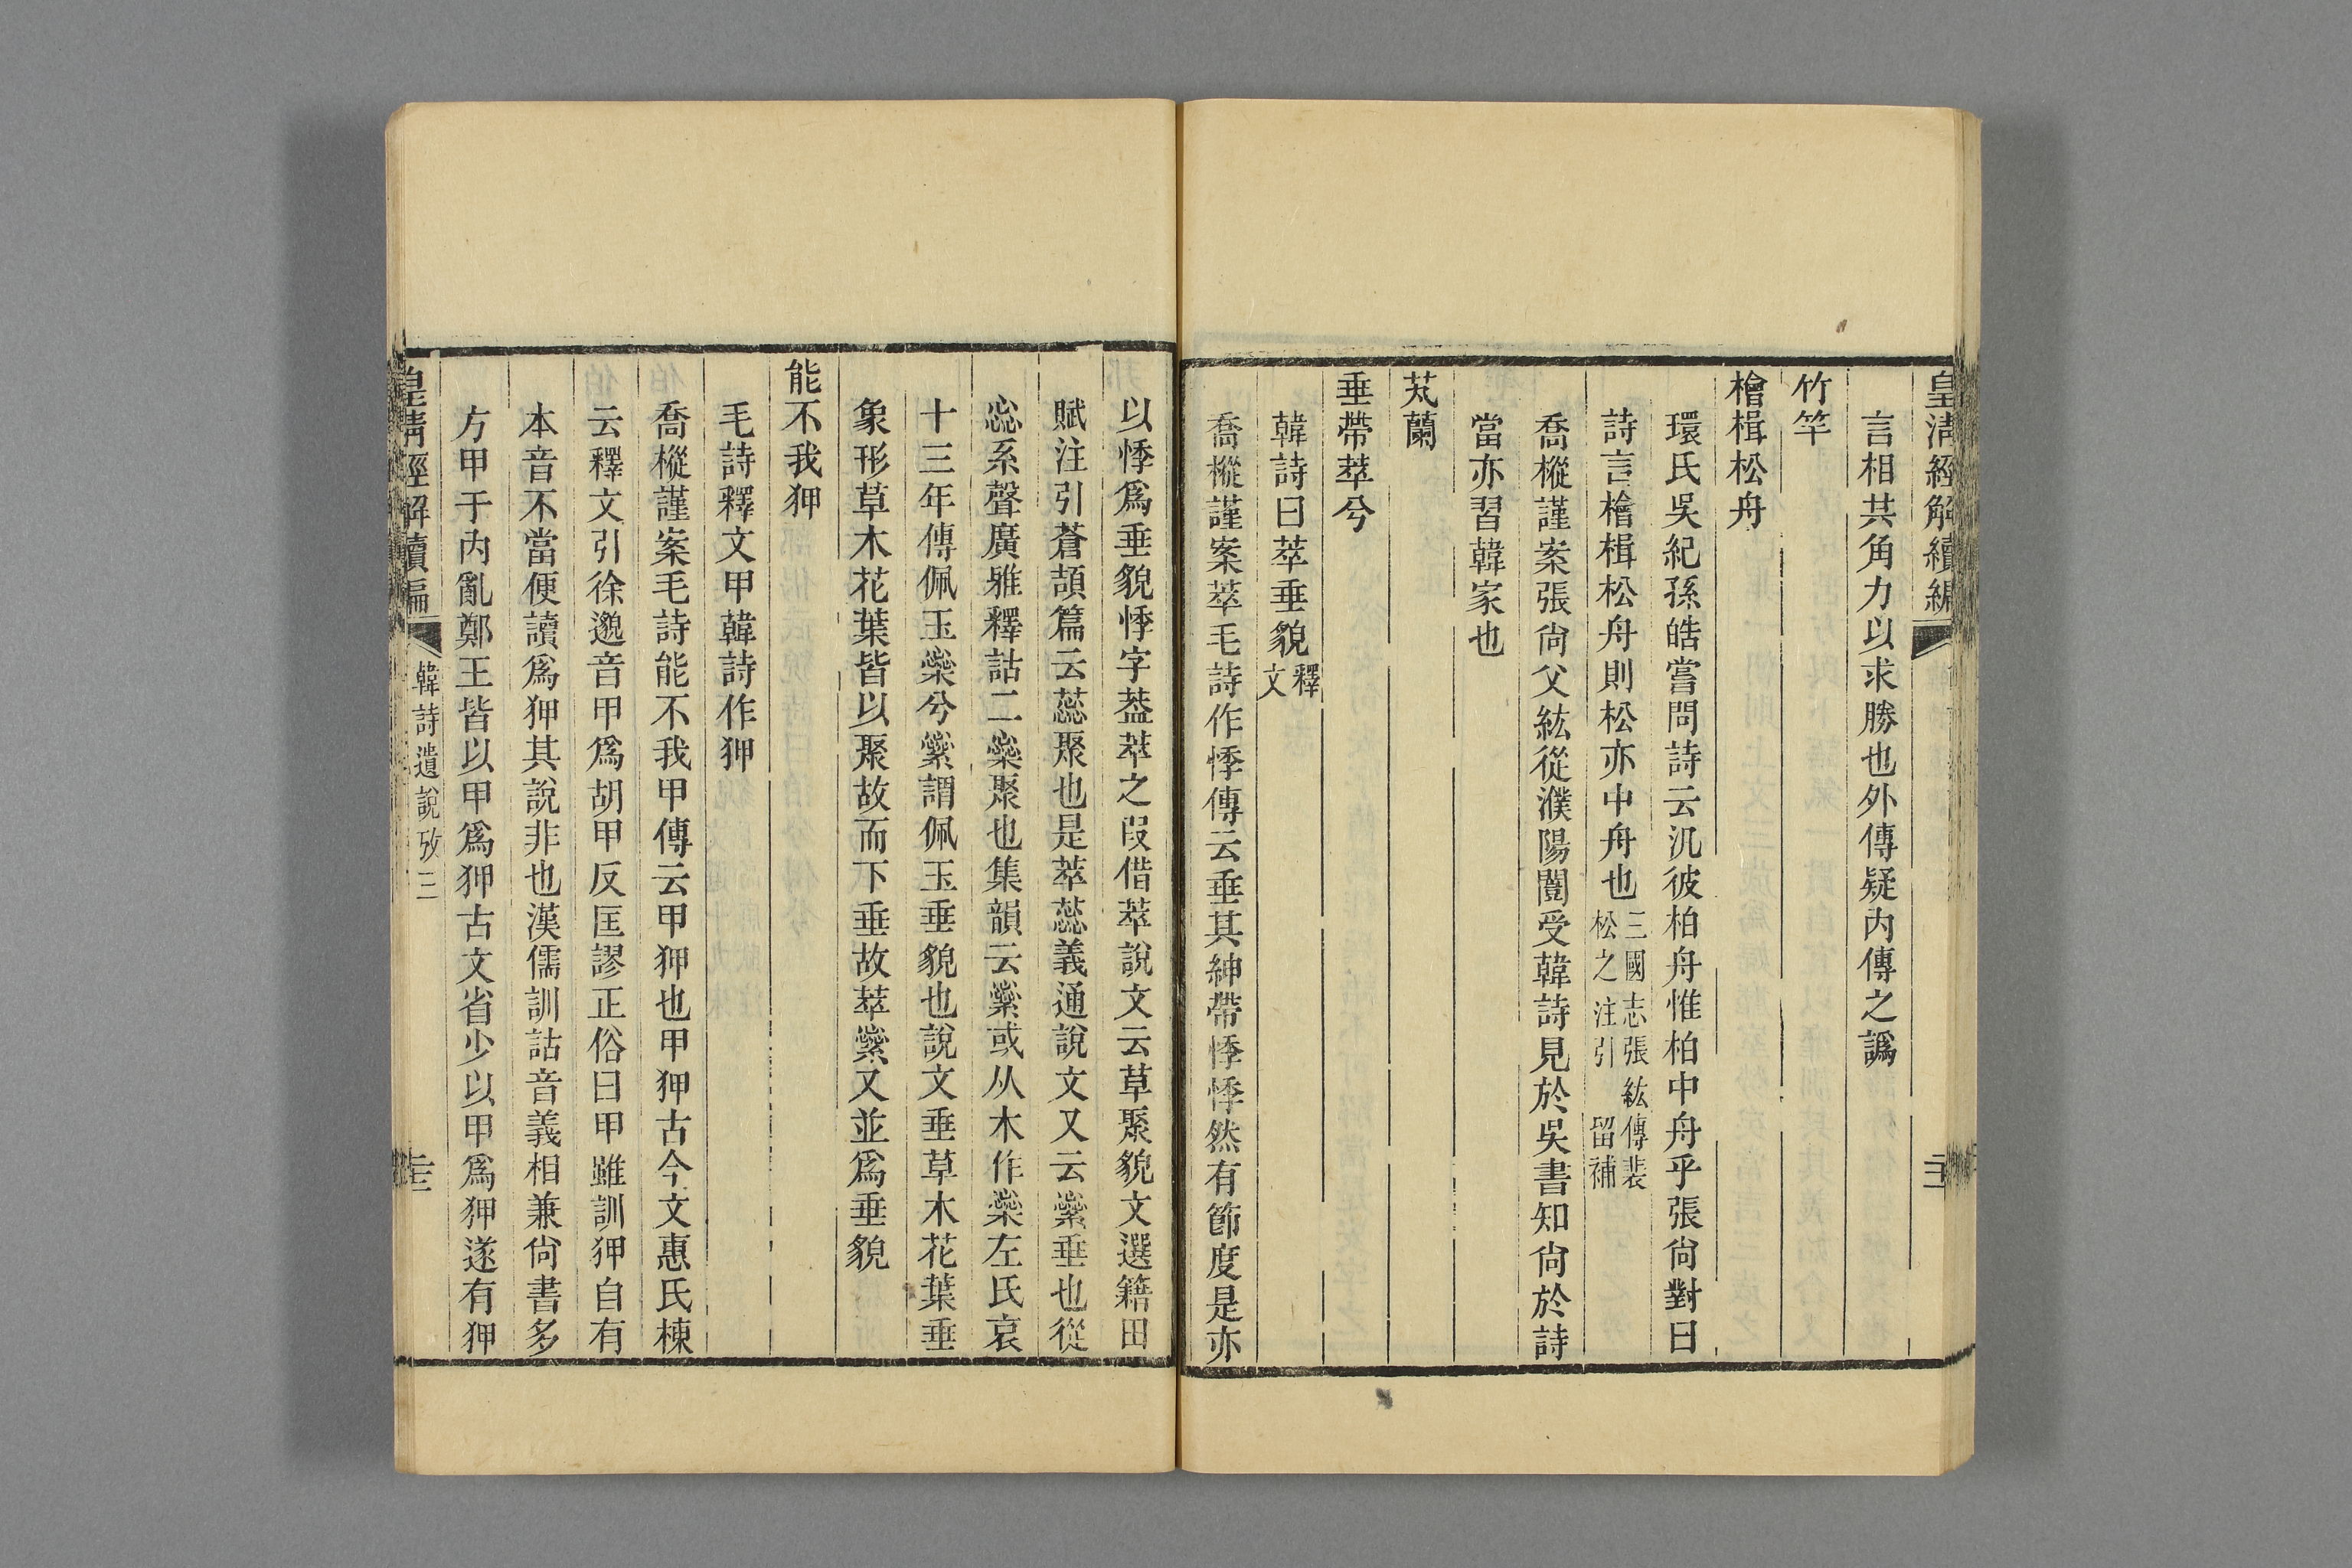 皇清經解續編
言相共角力以求勝也外傳疑內傳之譌
竹竿
檜楫松舟
環氏吳紀孫皓嘗問詩云汎彼柏舟惟柏中舟乎張尙對曰
詩言檜楫松舟則松亦中舟也三國志張紘傳裴松之注引 留補
喬樅謹案張尙父紘從濮陽闓受韓詩見於吳書知尙於詩
當亦習韓家也
芄蘭
垂帶萃兮
韓詩曰萃垂貌釋文
喬樅謹案萃毛詩作悸傳云垂其紳帶悸悸然有節度是亦
以悸爲垂貌悸字葢萃之叚借萃說文云草聚貌文選籍田
賦注引蒼頡篇云蕊聚也是萃蕊義通說文又云縈垂也從
惢系聲廣雅釋詁二橤聚也集韻云繠或从木作橤左氏哀
十三年傳佩玉橤兮繠謂佩玉垂貌也說文垂草木花葉垂
象形草木花葉皆以聚故而下垂故萃繠又並爲垂貌
能不我狎
毛詩釋文甲韓詩作狎
喬樅謹案毛詩能不我甲傳云甲狎也甲狎古今文惠氏棟
云釋文引徐邈音甲爲胡甲反匡謬正俗曰甲雖訓狎自有
本音不當便讀爲狎其說非也漢儒訓詁音義相兼尙書多
方甲于內亂鄭王皆以甲爲狎古文省少以甲爲狎遂有狎
皇清經解續編 韓詩遺說攷三